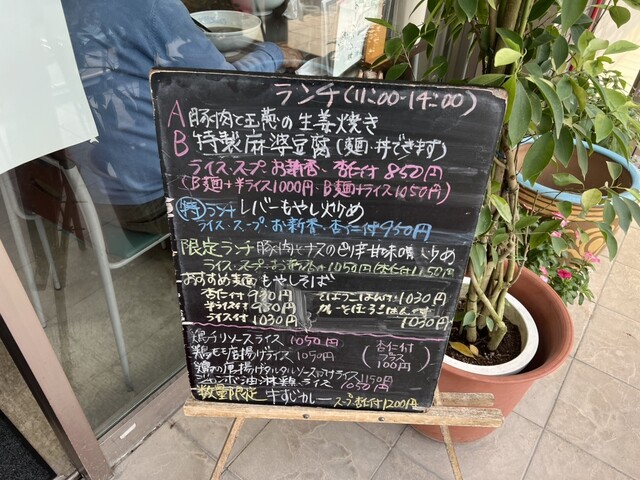 ランチ(11:00-14:00)
A 豚肉と玉葱の生姜焼き
B 特製麻婆豆腐(麺・丼できます)
ライス・スープ・お新香・杏仁付 850円
(B麺+半ライス1000円・B麺+ライス1050円)
ランチ レバーもやし炒め
ライス・スープ・お新香・杏仁付 950円
限定ランチ 豚肉とナスの辛甘味噌炒め
ライス・スープ・お新香付 1050円 (杏仁付 1150円
おすすめ麺 もやしそば
杏仁付 930円
半ライス付 980円
ライス付 1030円
とばろうごはん付 1030円
1030円
鶏チリソースライス 1050円
鶏モモ唐揚げライス 1050円
(杏仁付プラス100円)
鶏の唐揚げタルタルソースがけライス 1150円
ジャンボ油淋鶏ライス 1050円
数量限定 牛すじカレー スープ・杏仁付 1200円